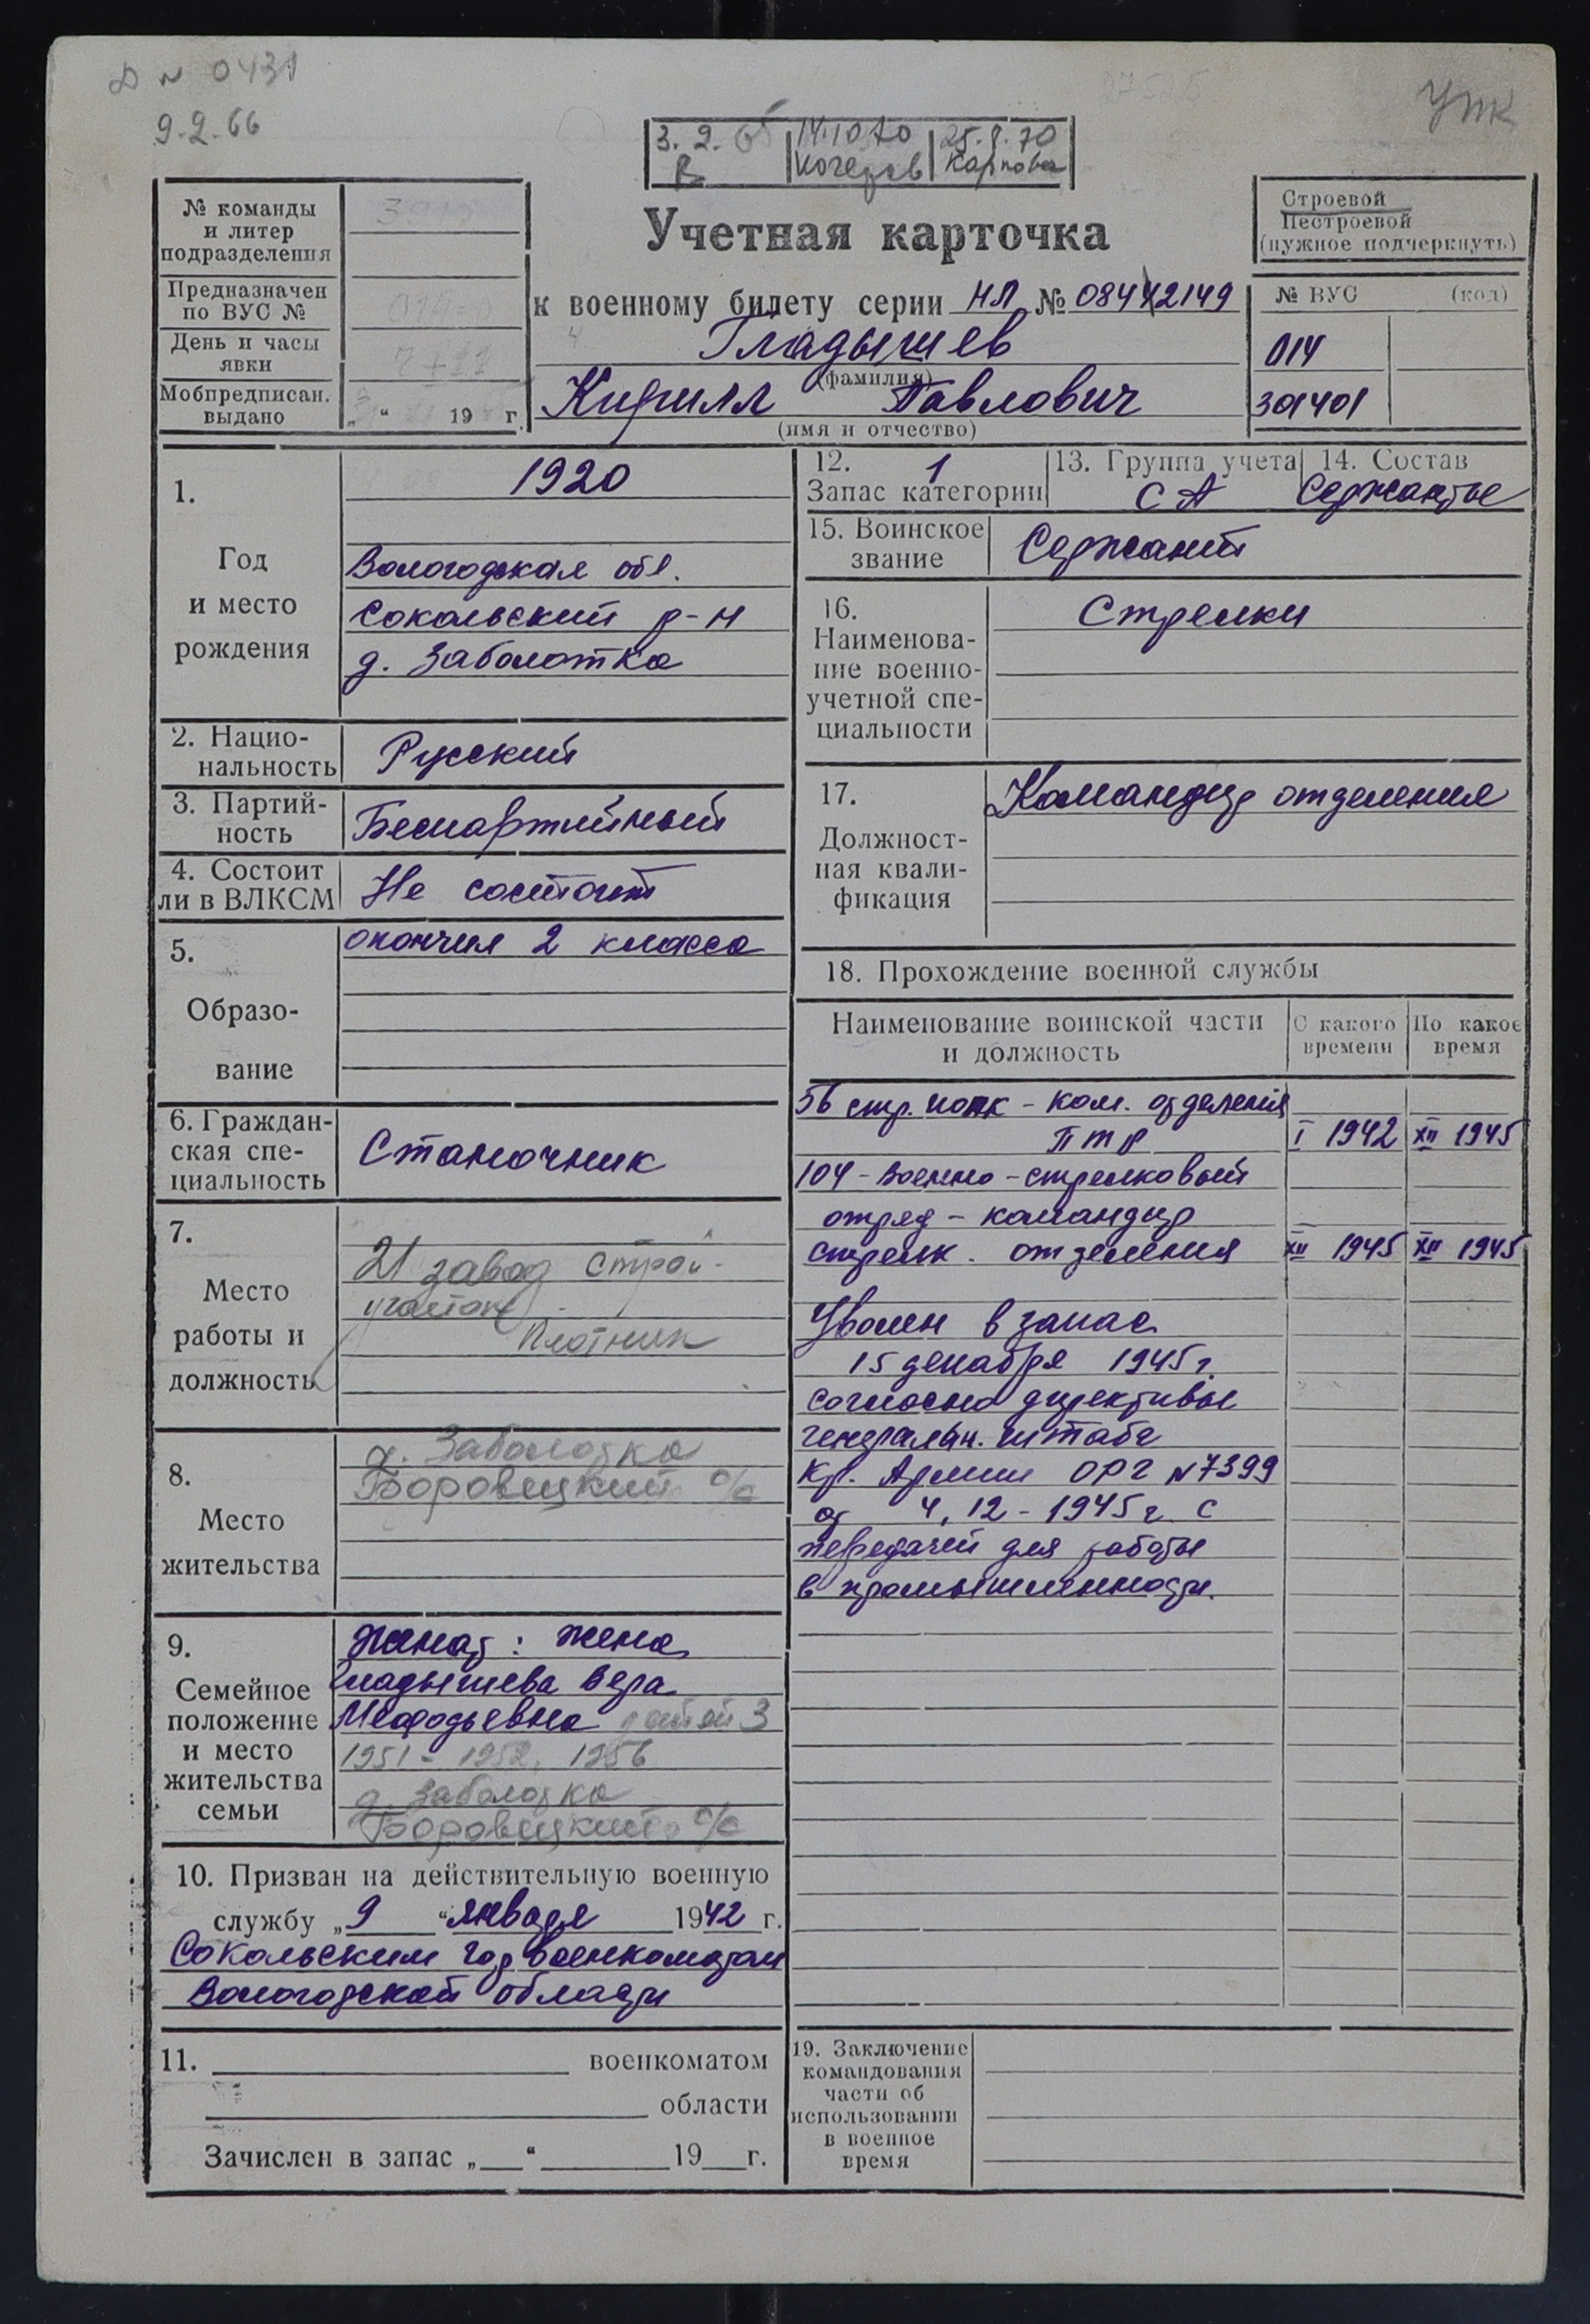 № 0431
9.2.66
УПК
3. 2. 65
14.10.70
25.8.70
В
Карпова
№ команды
и литер
подразделения
Предназначен
по ВУС №
День и часы
явки
Мобпредписан.
выдано
„ “ 19 г.
Учетная карточка
к военному билету серии НЛ № 0842149
Гладышев
(фамилия)
Кирилл Павлович
(имя и отчество)
Строевой
Нестроевой
(нужное подчеркнуть)
№ ВУС (код)
014
301401
1.
Год
и место
рождения
1920
Вологодская обл.
Сокольский р-н
д. Заболотка
2. Нацио-
нальность
Русский
3. Партий-
ность
Беспартийный
4. Состоит
ли в ВЛКСМ
Не состоит
5.
Образо-
вание
окончил 2 класса
6. Граждан-
ская спе-
циальность
Станочник
7.
Место
работы и
должность
21 завод Строй-
участок -
Плотник
8.
Место
жительства
д. Заболотка
Боровецкий с/с
9.
Семейное
положение
и место
жительства
семьи
Женат: жена
Гладышева Вера
Мефодьевна детей 3
1951 - 1952, 1956
д. Заболотка
Боровецкий с/с
10. Призван на действительную военную
службу „9“ января 1942 г.
Сокольским гор военкоматом
Вологодской области
11. военкоматом
области
Зачислен в запас „ “ 19 г.
12. 1
Запас категории
13. Группа учета
СА
14. Состав
Сержанты
15. Воинское
звание
Сержант
16.
Наименова-
ние военно-
учетной спе-
циальности
Стрелки
17.
Должност-
ная квали-
фикация
Командир отделения
18. Прохождение военной службы
Наименование воинской части
и должность
С какого
времени
По какое
время
56 стр. полк - ком. отделения
ПТР I 1942 XII 1945
104 - военно - стрелковый
отряд - командир
стрелк. отделения XII 1945 XII 1945
Уволен в запас
15 декабря 1945 г.
согласно директивы
генеральн. штаба
Кр. Армии ОРГ №7399
от 4, 12 - 1945 г с
передачей для работы
в промышленности.
19. Заключение
командования
части об
использовании
в военное
время